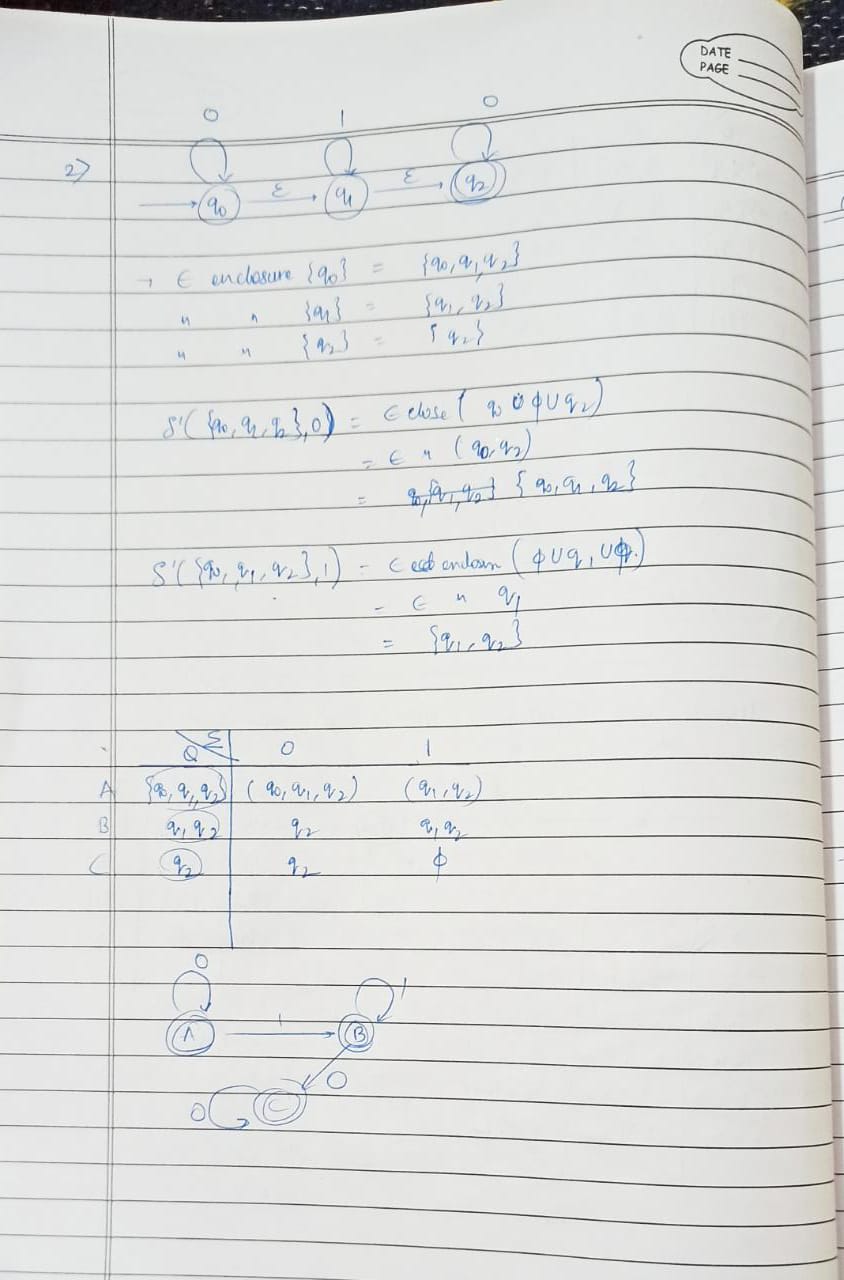 DATE
PAGE
0 1 0
2>
q0 ε q1 ε q2
→ ∈ enclosure {q0} = {q0, q1, q2}
〃 〃 {q1} = {q1, q2}
〃 〃 {q2} = {q2}
δ'({q0, q1, q2}, 0) = ∈ close ( q0 ∪ ϕ ∪ q2)
= ∈ 〃 (q0, q2)
= {q0, q1, q2}
δ'({q0, q1, q2}, 1) = ∈ (ϕ ∪ q1 ∪ ϕ)
= ∈ 〃 q1
= {q1, q2}
Q Σ 0 1
A {q0, q1, q2} (q0, q1, q2) (q1, q2)
B q1 q2 q2 q1 q2
C q2 q2 ϕ
0 1
A 1 B
0
0 C